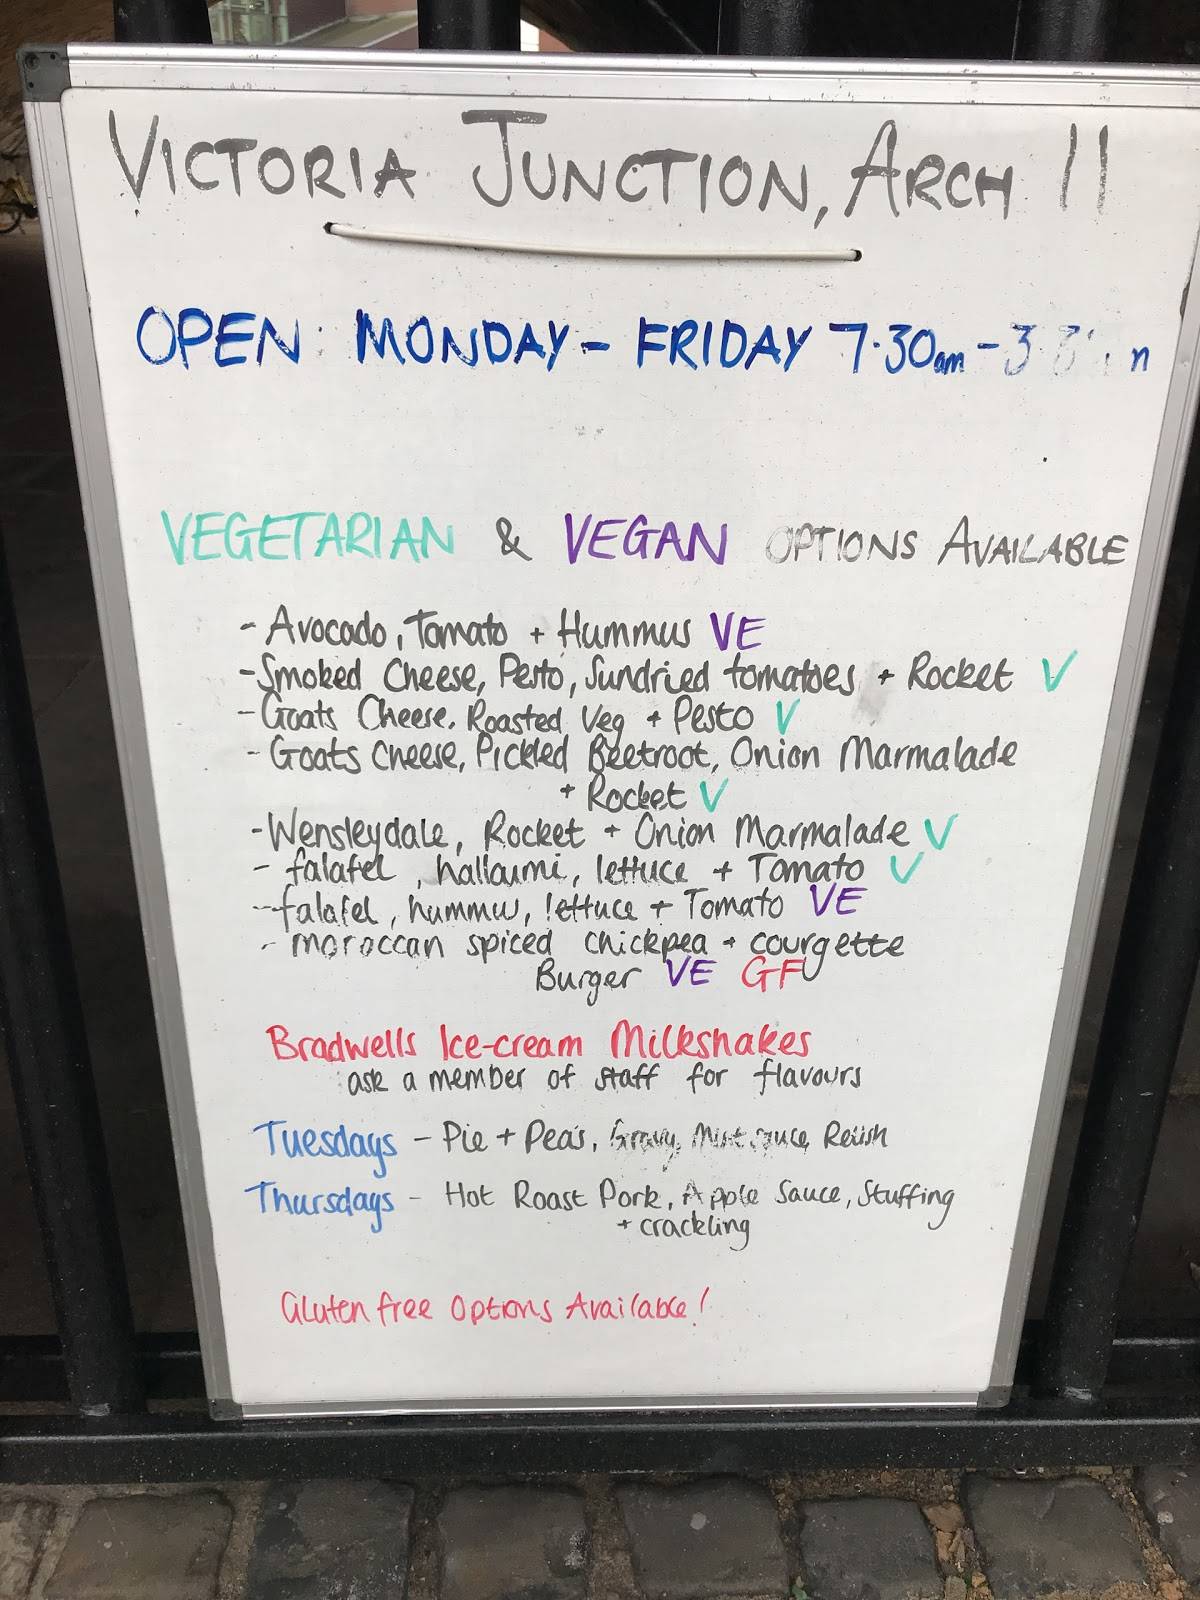 VICTORIA JUNCTION, ARCH 11
OPEN MONDAY - FRIDAY 7.30am -
VEGETARIAN & VEGAN OPTIONS AVAILABLE
- Avocado, Tomato + Hummus VE
- Smoked Cheese, Pesto, Sundried tomatoes + Rocket V
- Goats Cheese, Roasted Veg + Pesto V
- Goats Cheese, Pickled Beetroot, Onion Marmalade
+ Rocket V
- Wensleydale, Rocket + Onion Marmalade V
- falafel, halloumi, lettuce + Tomato V
- falafel, hummus, lettuce + Tomato VE
- moroccan spiced chickpea + courgette
Burger VE GF
Bradwells Ice-cream Milkshakes
ask a member of staff for flavours
Tuesdays - Pie + Peas, Gravy, Mint sauce, Relish
Thursdays - Hot Roast Pork, Apple Sauce, Stuffing
+ crackling
Gluten free Options Available!